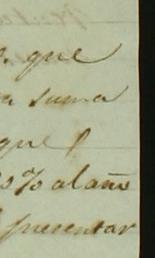 que
suma
que
% al año
presentar